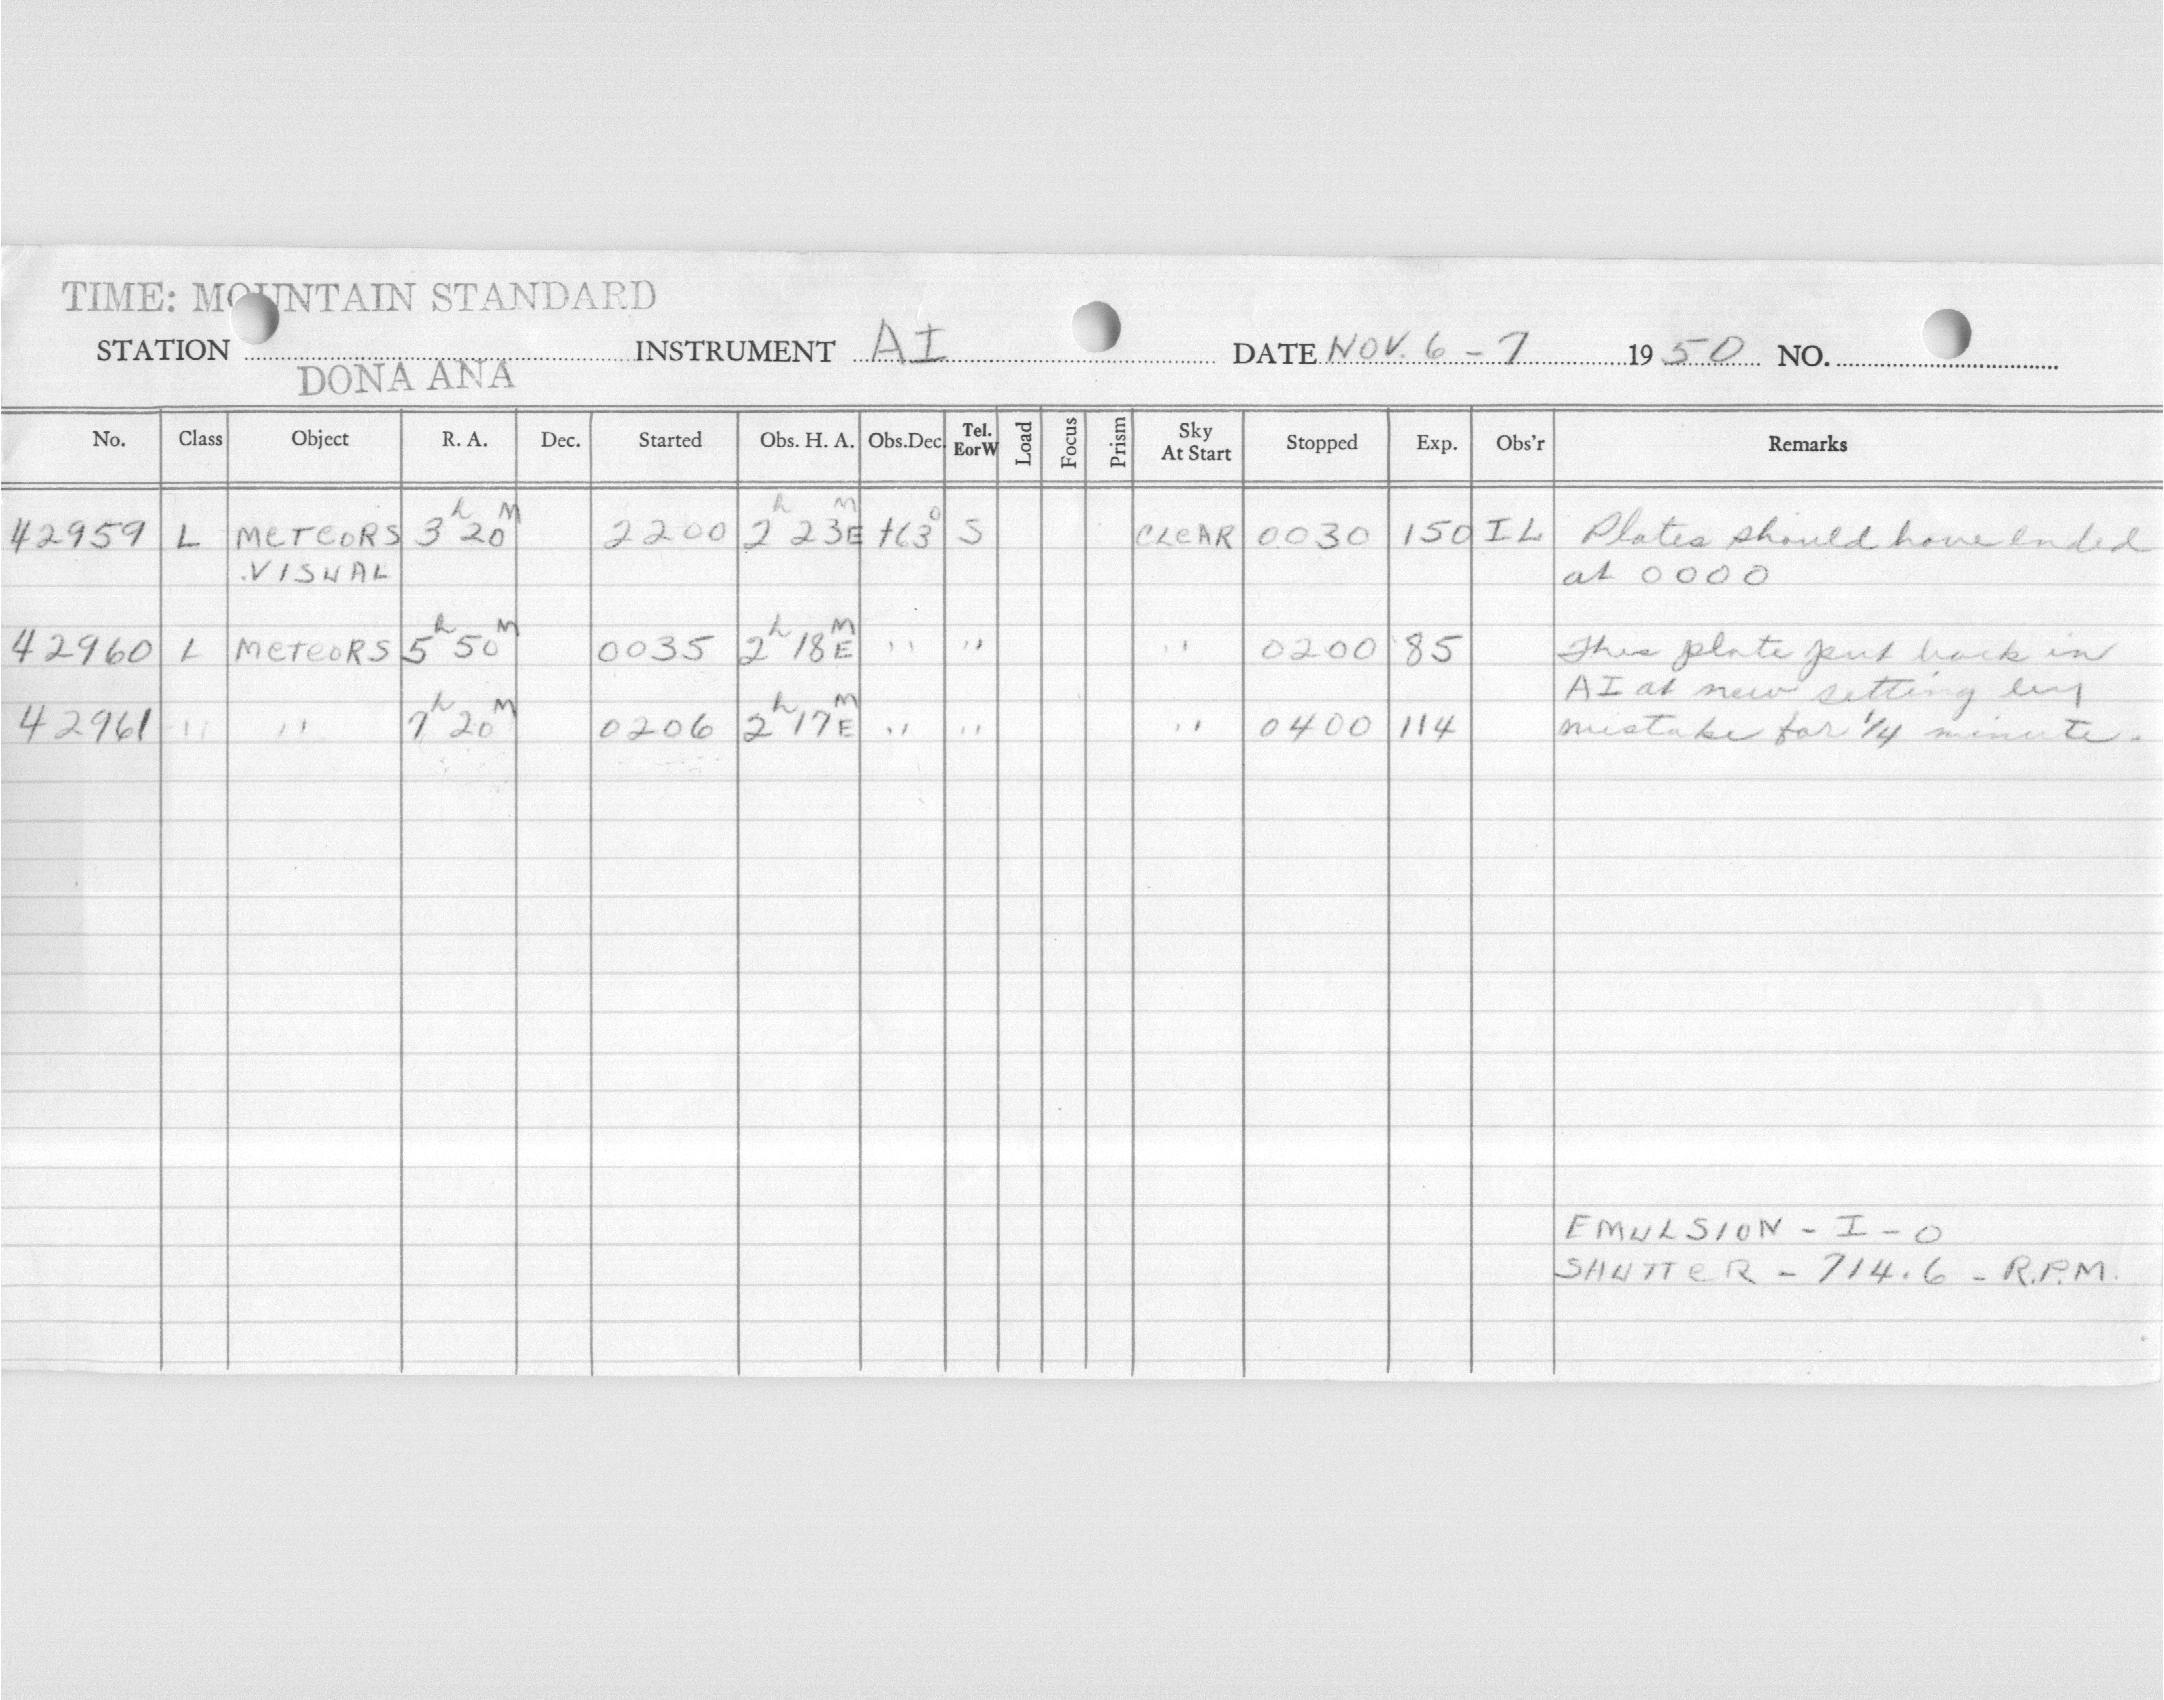 TIME: MOUNTAIN STANDARD
STATION DONA ANA INSTRUMENT AI DATE NOV. 6-7 1950 NO.
No. Class Object R. A. Dec. Started Obs. H. A. Obs.Dec. Tel. EorW Load Focus Prism Sky At Start Stopped Exp. Obs'r Remarks
42959 L METEORS 3h 20M 2200 2h 23M E +63° S CLEAR 0030 150 IL Plates should have ended
VISUAL at 0000
42960 L METEORS 5h 50M 0035 2h 18M E " " " 0200 85 This plate put back in
AI at new setting by
42961 " " 7h 20M 0206 2h 17M E " " " 0400 114 mistake for 1/4 minute.
EMULSION - I - O
SHUTTER - 714.6 - R.P.M.